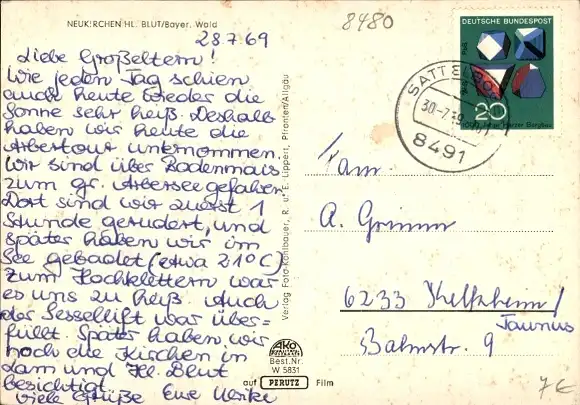 NEUKIRCHEN HL. BLUT/Bayer. Wald
8480
28.7.69
Liebe Großeltern!
Wie jeden Tag schien
auch heute wieder die
Sonne sehr heiß. Deshalb
haben wir heute die
Arbertour unternommen.
Wir sind über Bodenmais
zum gr. Arbersee gefahren
Dort sind wir zuerst 1
Stunde gerudert, und
später haben wir im
See gebadet (etwa 21°C)
Zum Hochklettern war
es uns zu heiß. Auch
der Sessellift war über-
füllt. Später haben wir
noch die Kirchen in
Lam und Hl. Blut
besichtigt.
Viele Grüße Eure Ulrike
Verlag Foto-Kohlbauer, R. u. E. Lippert, Pfronten/Allgäu
DEUTSCHE BUNDESPOST
20
1000 Jahre Harzer Bergbau
30.-7.69
8491
Fam.
A. Grimm
6233 Kelkheim/
Taunus
Bahnstr. 9
AKO
Best.Nr.
W 5831
auf PERUTZ Film
7€